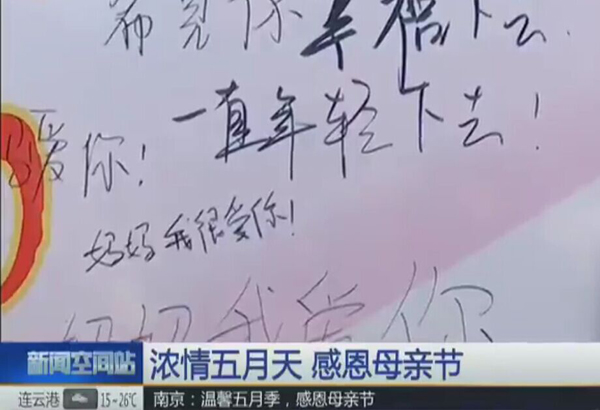 希望你幸福下去
一直年轻下去!
爱你!
妈妈我很爱你!
妈妈我爱你
新闻空间站
浓情五月天 感恩母亲节
连云港 15-26℃
南京:温馨五月季,感恩母亲节